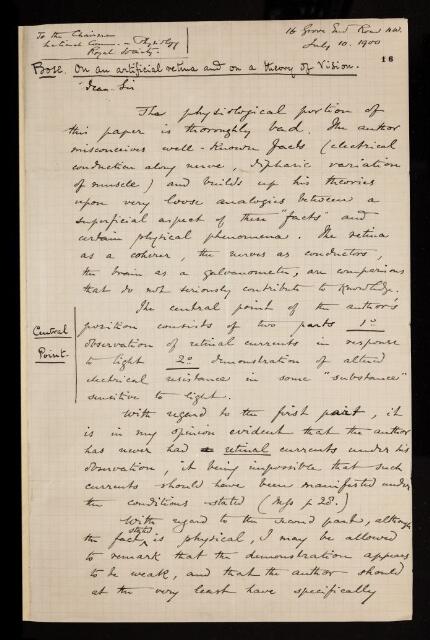 To the Chairman
Sectional Comm. - Physiology
Royal Society.
16 Grove End Road NW.
July 10. 1900
16
Bose. On an artificial retina and on a theory of Vision.
Dear Sir
The physiological portion of
this paper is thoroughly bad. The author
misconceives well-known facts (electrical
conduction along nerve, diphasic variation
of muscle) and builds up his theories
upon very loose analogies between a
superficial aspect of these "facts" and
certain physical phenomena. The retina
as a coherer, the nerves as conductors,
the brain as a galvanometer, are comparisons
that do not seriously contribute to knowledge.
The central point of the author's
Central
Point.
position consists of two parts 1o
observation of retinal currents in response
to light 2o demonstration of altered
electrical resistance in some "substances"
sensitive to light.
With regard to the first part, it
is in my opinion evident that the author
has never had retinal currents under his
observation, it being impossible that such
currents should have been manifested under
the conditions stated (Mss p 28.)
With regard to the second part, although
the fact stated is physical, I may be allowed
to remark that the demonstration appears
to be weak, and that the author should
at the very least have specifically